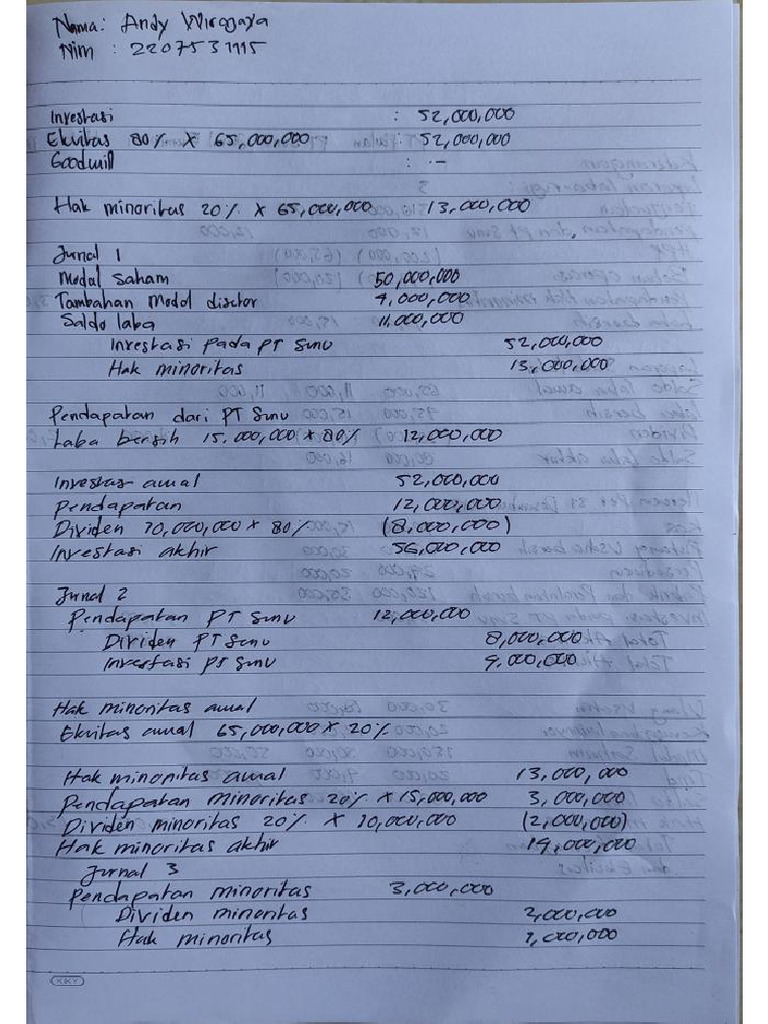 Nama: Andy Wiragaya
Nim : 2207531195
Investasi : 52,000,000
Ekuitas 80% X 65,000,000 : 52,000,000
Goodwill : -
Hak minoritas 20% X 65,000,000 13,000,000
Jurnal 1
Modal saham 50,000,000
Tambahan Modal disetor 4,000,000
Saldo laba 11,000,000
Investasi pada PT Sunu 52,000,000
Hak minoritas 13,000,000
Pendapatan dari PT Sunu
Laba bersih 15.000,000 X 80% 12,000,000
Investasi awal 52,000,000
Pendapatan 12,000,000
Dividen 10,000,000 X 80% (8,000,000)
Investasi akhir 56,000,000
Jurnal 2
Pendapatan PT Sunu 12,000,000
Dividen PT Sunu 8,000,000
Investasi PT Sunu 4,000,000
Hak minoritas awal
Ekuitas awal 65,000,000 X 20%
Hak minoritas awal 13,000,000
Pendapatan minoritas 20% X 15,000,000 3,000,000
Dividen minoritas 20% X 10,000,000 (2,000,000)
Hak minoritas akhir 14,000,000
Jurnal 3
Pendapatan minoritas 3,000,000
Dividen minoritas 2,000,000
Hak minoritas 1,000,000
KKY